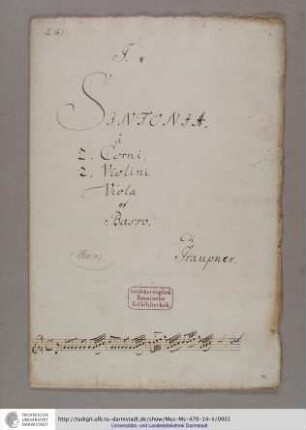 SINFONIA.
à
2. Corni.
2. Violini
Viola
et
Basso.
Graupner.
Großherzoglich
Hessische
Hofbibliothek.
TECHNISCHE
UNIVERSITÄT
DARMSTADT
http://tudigit.ulb.tu-darmstadt.de/show/Mus-Ms-470-14-k/0001
Universitäts- und Landesbibliothek Darmstadt